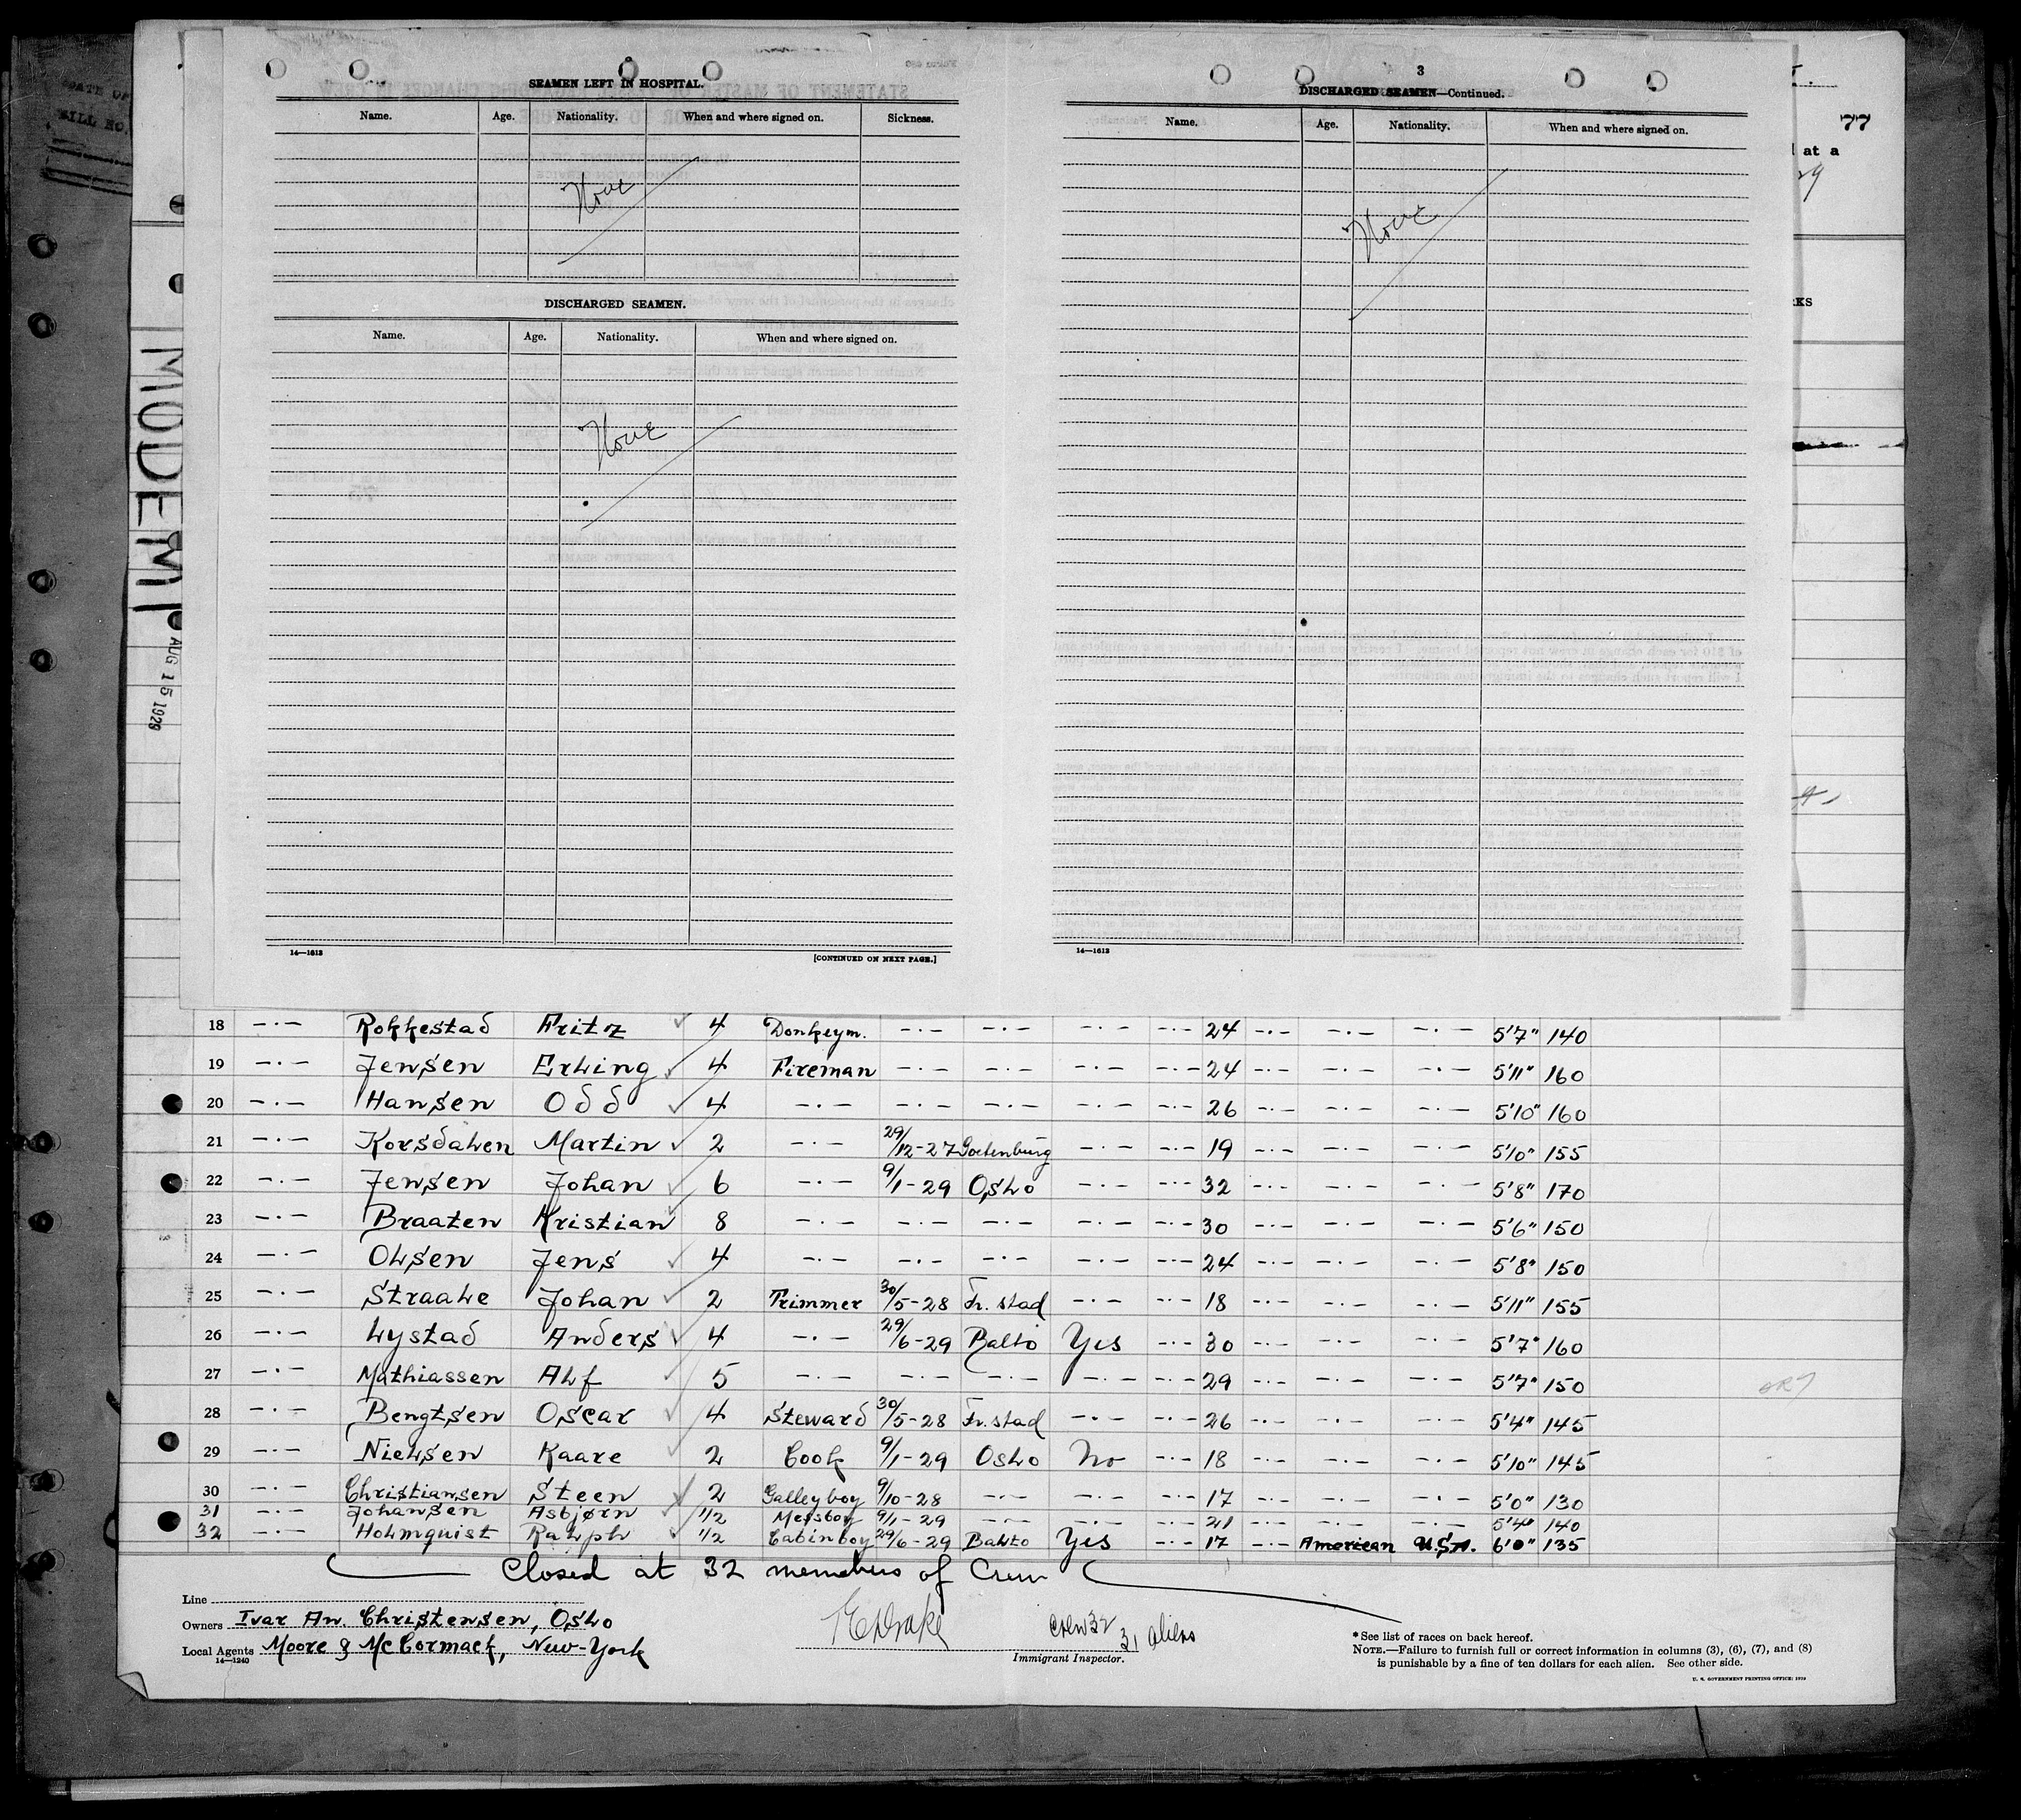 SEAMEN LEFT IN HOSPITAL.
Name. Age. Nationality. When and where signed on. Sickness.
None
DISCHARGED SEAMEN.
Name. Age. Nationality. When and where signed on.
None
14—1613 [CONTINUED ON NEXT PAGE.]
3
DISCHARGED SEAMEN—Continued.
Name. Age. Nationality. When and where signed on.
None
14—1613
77
at a
29
RKS
MODEMI
AUG 15 1929
18 —·— Rokkestad Fritz ✓ 4 Donkeym. —·— —·— —·— —·— 24 —·— —·— —·— 5'7" 140
19 —·— Jensen Erling ✓ 4 Fireman —·— —·— —·— —·— 24 —·— —·— —·— 5'11" 160
20 —·— Hansen Odd ✓ 4 —·— —·— —·— —·— —·— 26 —·— —·— —·— 5'10" 160
21 —·— Korsdalen Martin ✓ 2 —·— 29/12-27 Goetenburg —·— —·— 19 —·— —·— —·— 5'10" 155
22 —·— Jensen Johan ✓ 6 —·— 9/1-29 Oslo —·— —·— 32 —·— —·— —·— 5'8" 170
23 —·— Braaten Kristian ✓ 8 —·— —·— —·— —·— —·— 30 —·— —·— —·— 5'6" 150
24 —·— Olsen Jens ✓ 4 —·— —·— —·— —·— —·— 24 —·— —·— —·— 5'8" 150
25 —·— Straale Johan ✓ 2 Trimmer 30/5-28 Fr. stad —·— —·— 18 —·— —·— —·— 5'11" 155
26 —·— Lystad Anders ✓ 4 —·— 29/6-29 Balto Yes —·— 30 —·— —·— —·— 5'7" 160
27 —·— Mathiassen Alf ✓ 5 —·— —·— —·— —·— —·— 29 —·— —·— —·— 5'7" 150
28 —·— Bengtsen Oscar ✓ 4 Steward 30/5-28 Fr. stad —·— —·— 26 —·— —·— —·— 5'4" 145
29 —·— Nielsen Kaare ✓ 2 Cook 9/1-29 Oslo No —·— 18 —·— —·— —·— 5'10" 145
30 —·— Christiansen Steen ✓ 2 Galleyboy 9/10-28 —·— —·— —·— 17 —·— —·— —·— 5'0" 130
31 —·— Johansen Asbjørn ✓ 1/2 Messboy 9/1-29 —·— —·— —·— 21 —·— —·— —·— 5'4" 140
32 —·— Holmquist Ralph ✓ 1/2 Cabinboy 29/6-29 Balto Yes —·— 17 —·— American U.S.A. 6'0" 135
Closed at 32 members of Crew
Line
Owners Ivar An. Christensen, Oslo
Local Agents Moore & McCormack, New-York
14—1240
Drake
Crew 32
31 aliens
Immigrant Inspector.
* See list of races on back hereof.
NOTE.—Failure to furnish full or correct information in columns (3), (6), (7), and (8)
is punishable by a fine of ten dollars for each alien. See other side.
U. S. GOVERNMENT PRINTING OFFICE: 1929